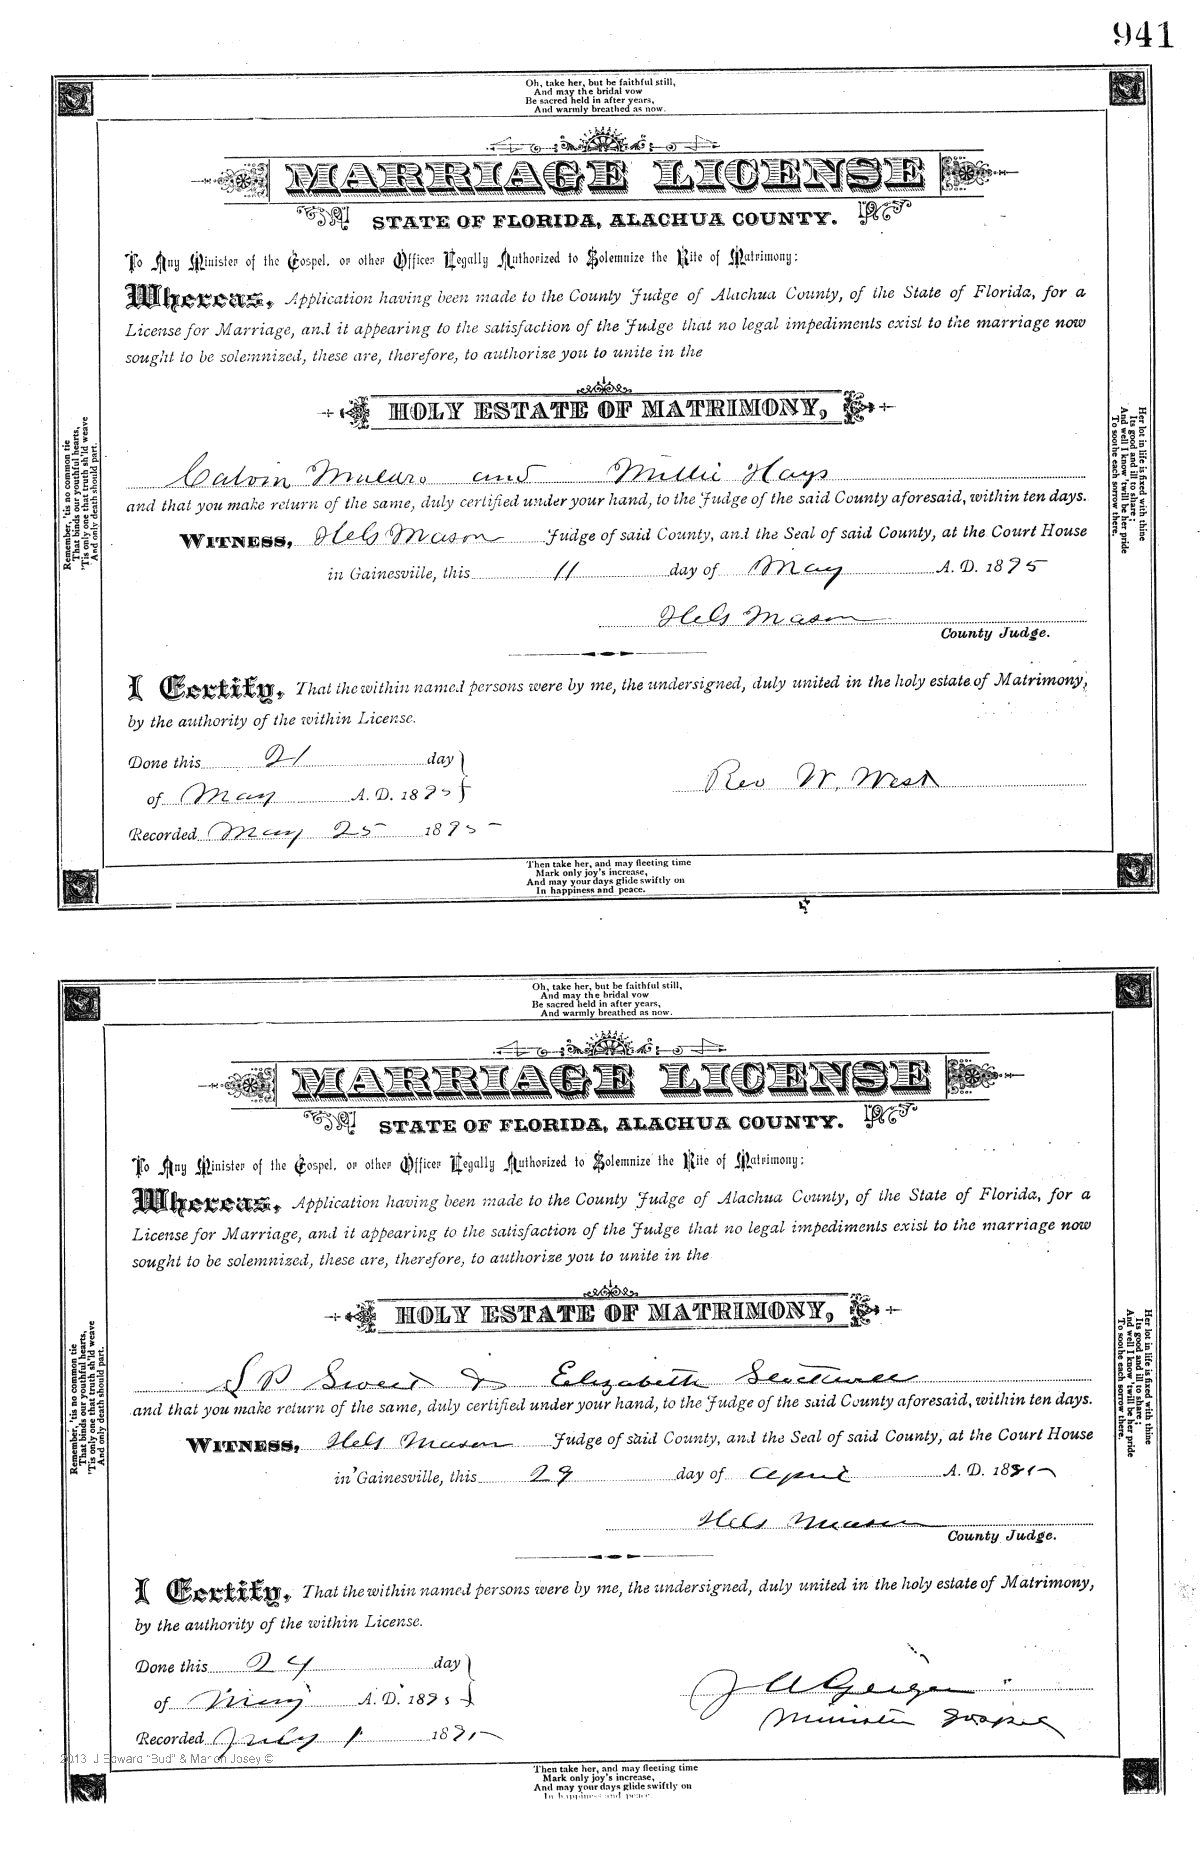 941
Oh, take her, but be faithful still,
And may the bridal vow
Be sacred held in after years,
And warmly breathed as now.
MARRIAGE LICENSE
STATE OF FLORIDA, ALACHUA COUNTY.
To Any Minister of the Gospel, or other Officer Legally Authorized to Solemnize the Rite of Matrimony:
Whereas, Application having been made to the County Judge of Alachua County, of the State of Florida, for a
License for Marriage, and it appearing to the satisfaction of the Judge that no legal impediments exist to the marriage now
sought to be solemnized, these are, therefore, to authorize you to unite in the
HOLY ESTATE OF MATRIMONY,
Calvin and Millie Hays
and that you make return of the same, duly certified under your hand, to the Judge of the said County aforesaid, within ten days.
WITNESS, Mason Judge of said County, and the Seal of said County, at the Court House
in Gainesville, this 11 day of May A. D. 1895
Mason
County Judge.
I Certify, That the within named persons were by me, the undersigned, duly united in the holy estate of Matrimony,
by the authority of the within License.
Done this 21 day
of May A. D. 1895
Rev W. West
Recorded May 25 1895
Then take her, and may fleeting time
Mark only joy's increase,
And may your days glide swiftly on
In happiness and peace.
Remember, 'tis no common tie
That binds our youthful hearts,
'Tis only one that truth sh'ld weave
And only death should part.
Her lot in life is fixed with thine
Its good and ill to share;
And well I know 'twill be her pride
To soothe each sorrow there.
Oh, take her, but be faithful still,
And may the bridal vow
Be sacred held in after years,
And warmly breathed as now.
MARRIAGE LICENSE
STATE OF FLORIDA, ALACHUA COUNTY.
To Any Minister of the Gospel, or other Officer Legally Authorized to Solemnize the Rite of Matrimony:
Whereas, Application having been made to the County Judge of Alachua County, of the State of Florida, for a
License for Marriage, and it appearing to the satisfaction of the Judge that no legal impediments exist to the marriage now
sought to be solemnized, these are, therefore, to authorize you to unite in the
HOLY ESTATE OF MATRIMONY,
S P Sweet & Elizabeth
and that you make return of the same, duly certified under your hand, to the Judge of the said County aforesaid, within ten days.
WITNESS, Mason Judge of said County, and the Seal of said County, at the Court House
in Gainesville, this 29 day of April A. D. 1895
Mason
County Judge.
I Certify, That the within named persons were by me, the undersigned, duly united in the holy estate of Matrimony,
by the authority of the within License.
Done this 24 day
of May A. D. 1895
J A Geiger
Minister Gospel
Recorded July 1 1895
2013 J Edward "Bud" & Marion Josey ©
Then take her, and may fleeting time
Mark only joy's increase,
And may your days glide swiftly on
In happiness and peace.
Remember, 'tis no common tie
That binds our youthful hearts,
'Tis only one that truth sh'ld weave
And only death should part.
Her lot in life is fixed with thine
Its good and ill to share;
And well I know 'twill be her pride
To soothe each sorrow there.